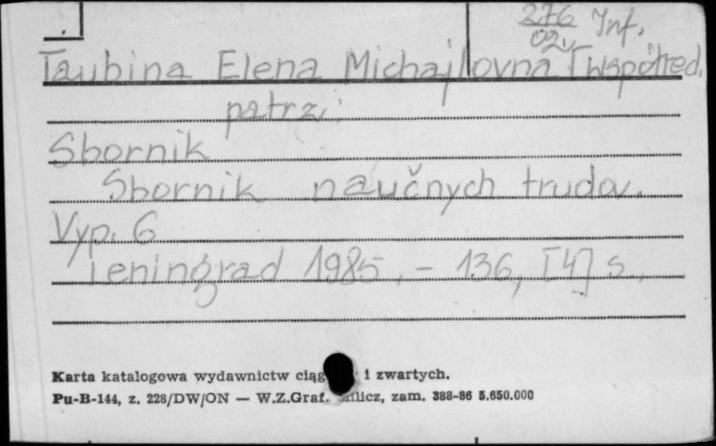 276 Inf.
02
Taubina Elena Michajlovna [współred.
patrz:
Sbornik
Sbornik naučnych trudov.
Vyp. 6
Leningrad 1985. - 136, [4] s.
Karta katalogowa wydawnictw i zwartych.
Pu-B-144, z. 228/DW/ON — W.Z.Graf. zam. 388-86 5.650.000